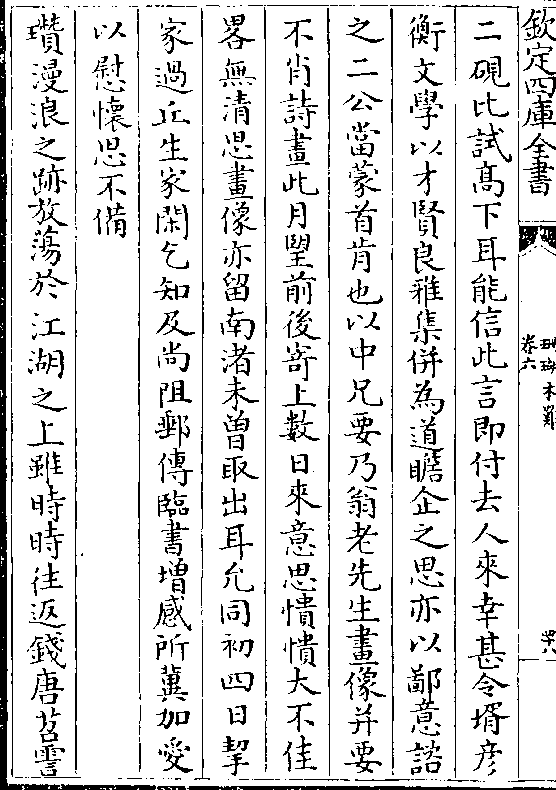 欽定四庫全書
珊瑚木難
卷六
罕八
二硯比試髙下耳能信此言即付去人來幸甚令壻彦
衡文學以才賢良雅集併為道瞻企之思亦以鄙意諮
之二公當蒙首肯也以中兄要乃翁老先生畫像并要
不肖詩畫此月朢前後寄上數日來意思憒憒大不佳
畧無清思畫像亦留南渚未曽取出耳允同初四日挈
家過丘生家閑乞知及尚阻郵傳臨書増感所冀加愛
以慰懷思不備
瓚漫浪之跡放蕩於江湖之上雖時時往返錢唐苕霅